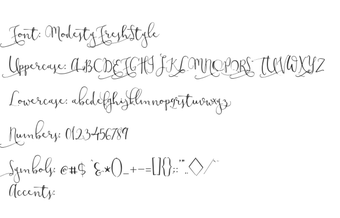 Font: ModestyFreshStyle
Uppercase: ABCDEFGHIJKLMNOPQRSTUVWXYZ
Lowercase: abcdefghijklmnopqrstuvwxyz
Numbers: 0123456789
Symbols: @#$
Accents: